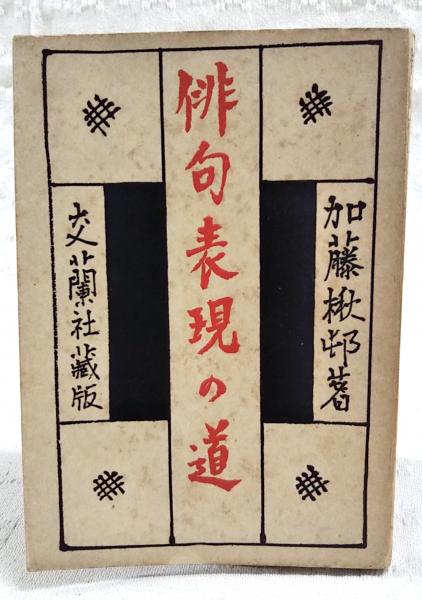 加藤楸邨著
俳句表現の道
交蘭社藏版